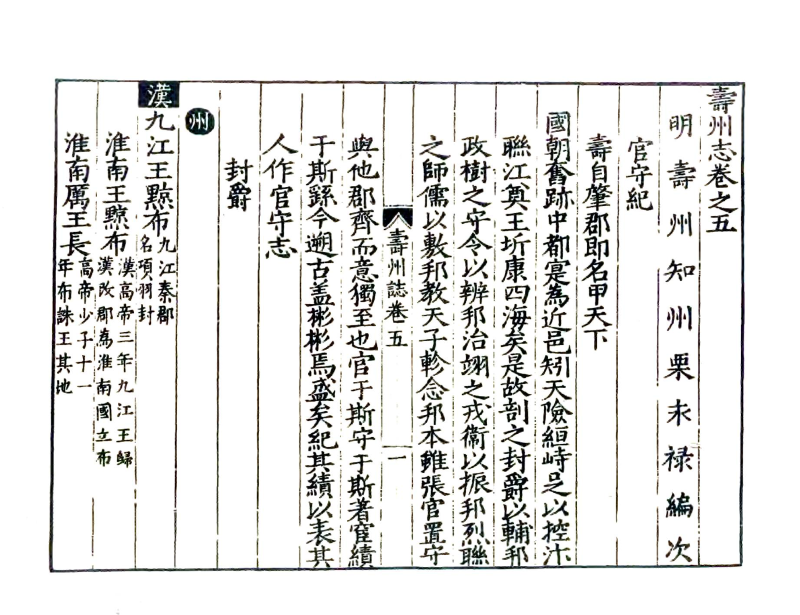 壽州志卷之五
明壽州知州栗永祿編次
官守紀
壽自肇郡即名甲天下
國朝舊跡中都寔為近邑矧天險絙峙足以控汴
聯江奠王圻康四海矣是故剖之封爵以輔邦
政樹之守令以辨邦治翊之戎衞以振邦烈聯
之師儒以敷邦教天子軫念邦本雖張官置守
壽州誌卷五
一
與他郡齊而意獨至也官于斯守于斯著寔績
于斯繇今遡古盖彬彬焉盛矣紀其績以表其
人作官守志
封爵
州
漢
九江王黥布
九江秦郡
名項羽封
淮南王黥布
漢高帝三年九江王歸
漢改郡為淮南國立布
淮南厲王長
高帝少子十一
年布誅王其地